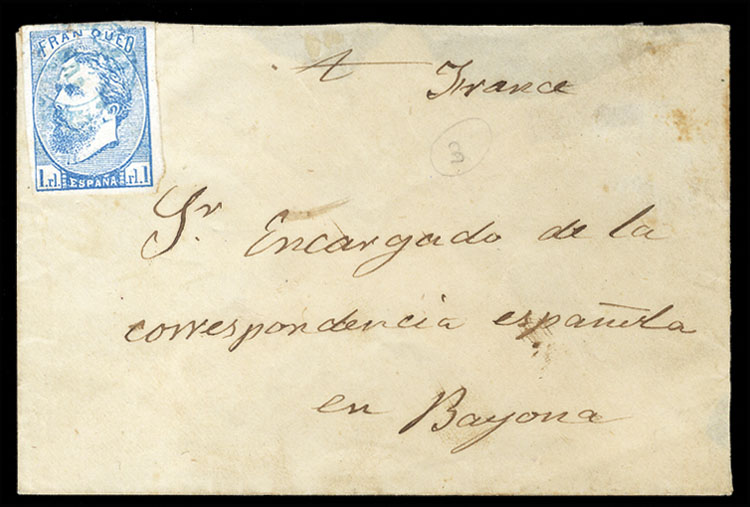 FRANQUEO
1.rl. ESPAÑA .rl.1
France
3
Sr Encargado de la
correspondencia española
en Bayona